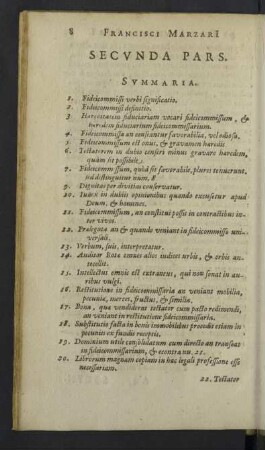 8 FRANCISCI MARZARI
SECVNDA PARS.
SVMMARIA.
1. Fideicommissi verbi significatio.
2. Fideicommissi definitio.
3. Haereditatem fiduciariam vocari fideicommissum, &
haeredem fiduciarium fideicommissarium.
4. Fideicommissa an censeantur favorabilia, vel odiosa.
5. Fideicommissum est onus, & gravamen haeredis
6. Testatorem in dubio censeri minus gravare haredem,
quàm sit possibile.
7. Fideicommissum, quòd sit favorabile, plures tenuerunt,
sed distinguitur num. 8
9. Dignitas per divitias conservatur.
10. Iudex in dubiis opinionibus quando excusetur apud
Deum, & homines.
11. Fideicommissum, an constitui possit in contractibus in-
ter vivos.
12. Praelegata an & quando veniant in fideicommisso uni-
versali.
13. Verbum, suis, interpretatur.
14. Auditor Rotae omnes alios iudices urbis, & orbis an-
tecellit.
15. Intellectus omnis est extraneus, qui non sonat in au-
ribus vulgi.
16. Restitutione in fideicommissaria an veniant mobilia,
pecunia, merces, fructus, & similia.
17. Bona, quae vendiderat testator cum pacto redimendi,
an veniant in restitutione fideicommissaria.
18. Substitutio facta in bonis immobilibus procedit etiam in
pecuniis ex fundis receptis.
19. Dominium utile consolidatum cum directo an transeat
in fideicommissarium, & econtra nu. 21.
20. Librorum magnam copiam in hac legali professione esse
necessariam.
22. Testator